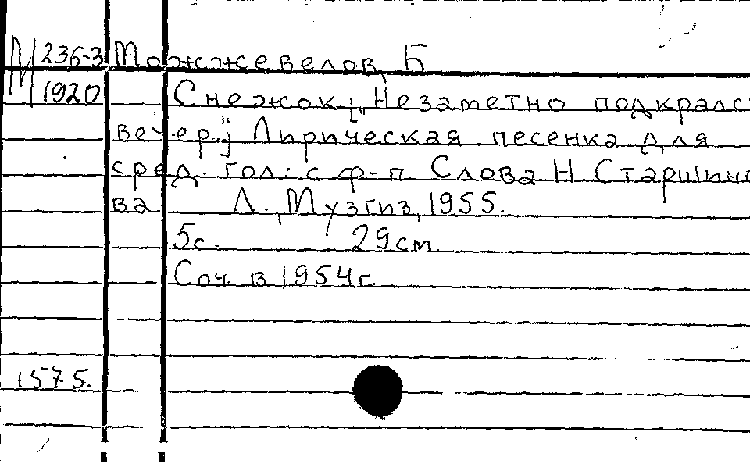 М 236-3 Можжевелов, Б
1920 Снежок. „Незаметно подкрался
вечер..." Лирическая песенка для
сред. гол. с ф-п. Слова Н Старшино
ва Л., Музгиз, 1955.
5с. 29см.
Соч. в 1954г
1575.